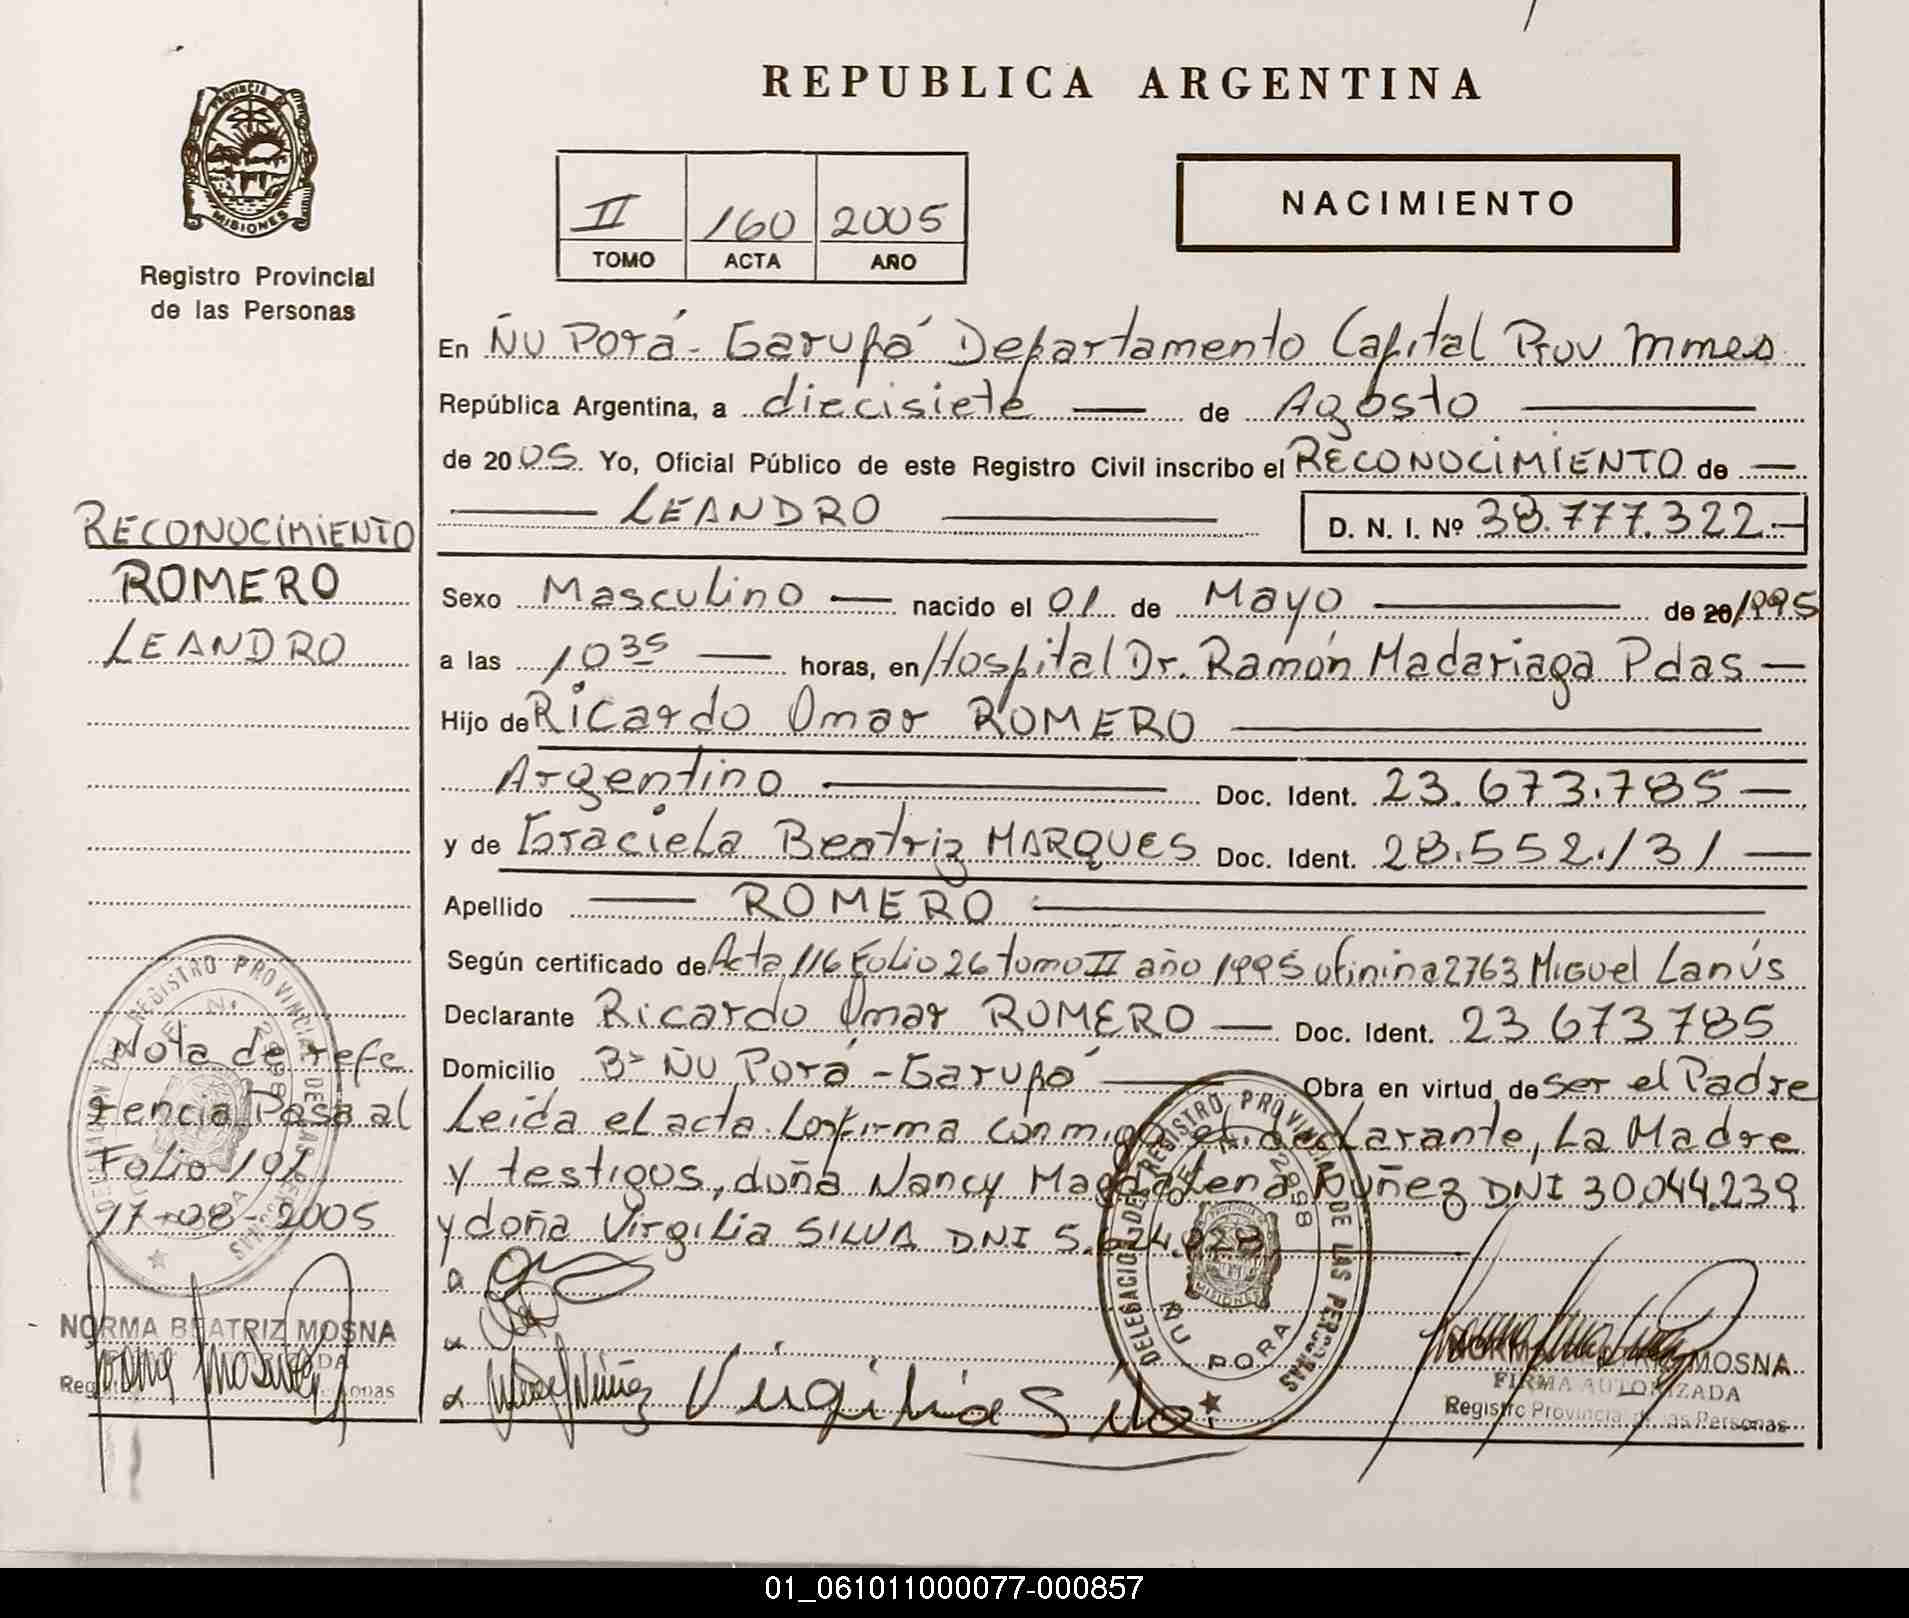 REPUBLICA ARGENTINA
PROVINCIA DE
MISIONES
Registro Provincial
de las Personas
II 160 2005
TOMO ACTA AÑO
NACIMIENTO
En Ñu Porá - Garupá Departamento Capital Prov Mnes
República Argentina, a diecisiete — de Agosto —
de 2005 Yo, Oficial Público de este Registro Civil inscribo el RECONOCIMIENTO de —
— LEANDRO — D. N. I. Nº 38.777.322.—
Sexo Masculino — nacido el 01 de Mayo — de 20/1995
a las 10 35 — horas, en Hospital Dr. Ramón Madariaga Pdas —
Hijo de Ricardo Omar ROMERO —
Argentino — Doc. Ident. 23.673.785 —
y de Graciela Beatriz MARQUES Doc. Ident. 28.552.131 —
Apellido — ROMERO —
Según certificado de Acta 116 Folio 26 tomo II año 1995 2763 Miguel Lanús
Declarante Ricardo Omar ROMERO — Doc. Ident. 23 673 785
Domicilio Bº Ñu Porá - Garupá — Obra en virtud de ser el Padre
Leída el acta Confirma conmigo el declarante, la Madre
y testigos, doña Nancy Magdalena Nuñez DNI 30.044.239
y doña Virgilia SILVA DNI 5.624.928 —
RECONOCIMIENTO
ROMERO
LEANDRO
Nota de refe
rencia Pasa al
Folio 101
17-08-2005
NORMA BEATRIZ MOSNA
Personas
DELEGACION DEL REGISTRO PROVINCIAL DE LAS PERSONAS
ÑU PORA
Virgilia Silva
MOSNA
FIRMA AUTORIZADA
Registro Provincial de las Personas
01_061011000077-000857